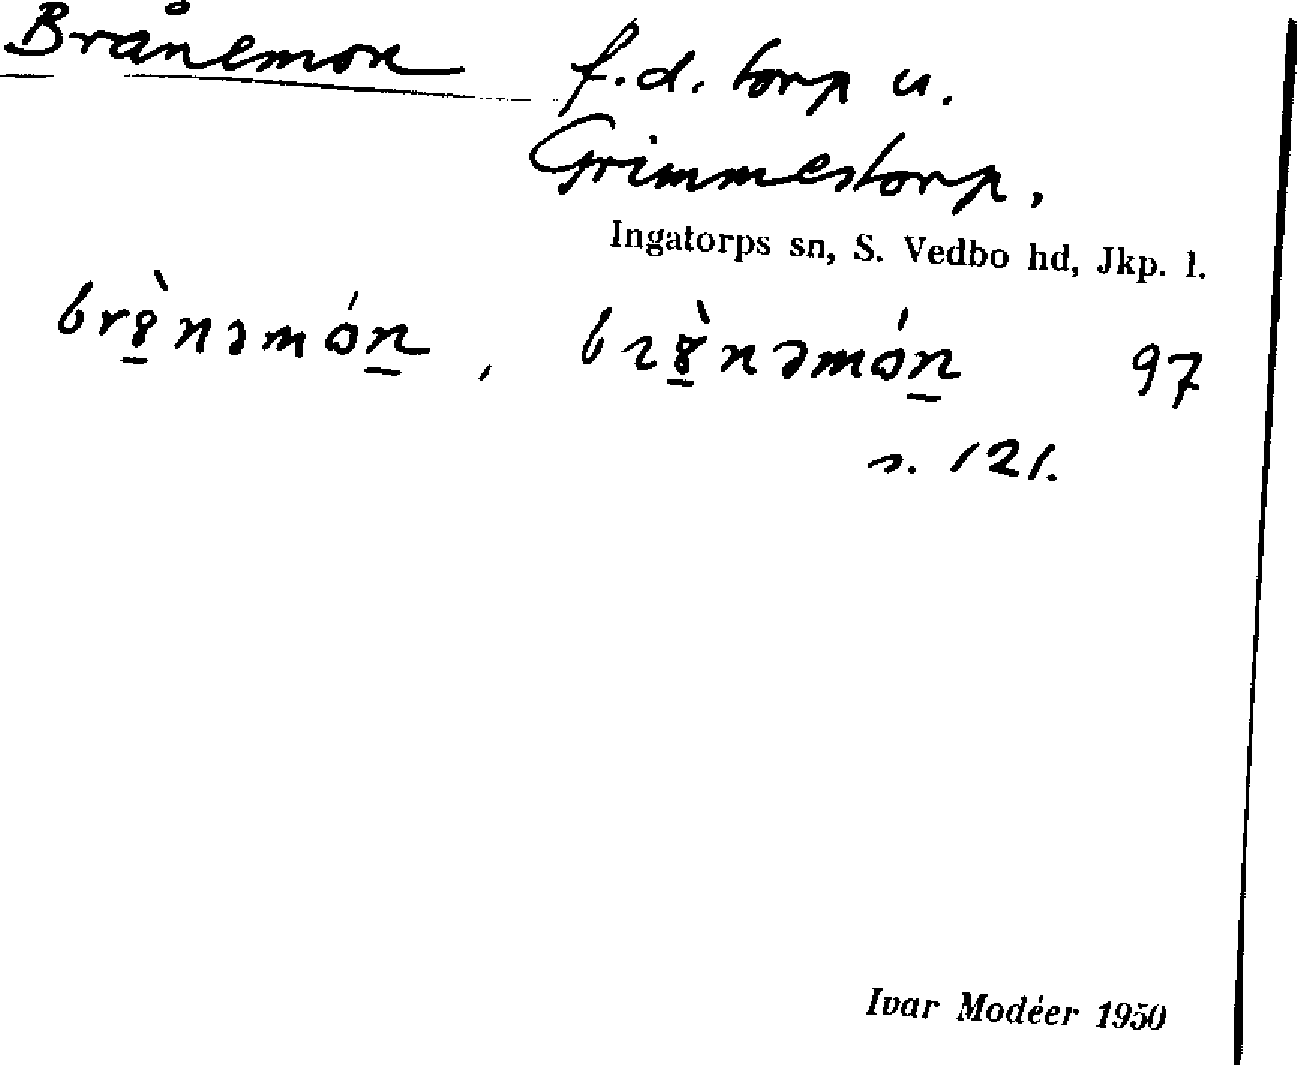 Brånemon f.d. torp u.
Grimmestorp.
Ingatorps sn, S. Vedbo hd, Jkp. l.
97
s. 121.
Ivar Modéer 1950